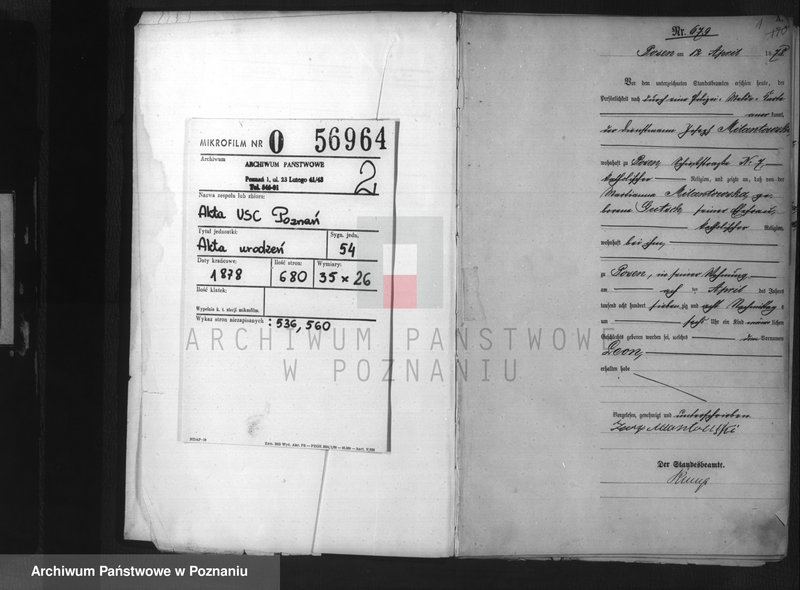 MIKROFILM NR O 56964
Archiwum
ARCHIWUM PAŃSTWOWE
Poznań 1, ul. 23 Lutego 41/43
Tel. 546-01
2
Nazwa zespołu lub zbioru:
Akta USC Poznań
Tytuł jednostki:
Akta urodzeń
Sygn. jedn.
54
Daty krańcowe:
1878
Ilość stron:
680
Wymiary:
35 × 26
Ilość klatek:
Wypełnia k. t. stacji mikrofilm.
Wykaz stron niezapisanych : 536, 560
Nr. 679
Posen am 12 April 1878
Vor dem unterzeichneten Standesbeamten erschien heute, der
Persönlichkeit nach durch eine Polizei-Melde-Karte
anerkannt,
der Dienstmann Joseph
wohnhaft zu Posen,
katholischer Religion, und zeigte an, daß von der
Marianna ge-
borene seiner Ehefrau,
katholischer Religion,
wohnhaft bei ihm,
zu Posen, in seiner Wohnung
am April des Jahres
tausend acht hundert siebenzig und acht Nachmittags
um sechs Uhr ein Kind männlichen
Geschlechts geboren worden sei, welches den Vornamen
Leon,
erhalten habe
Vorgelesen, genehmigt und unterschrieben
Der Standesbeamte.
ARCHIWUM PAŃSTWOWE
W POZNANIU
Archiwum Państwowe w Poznaniu